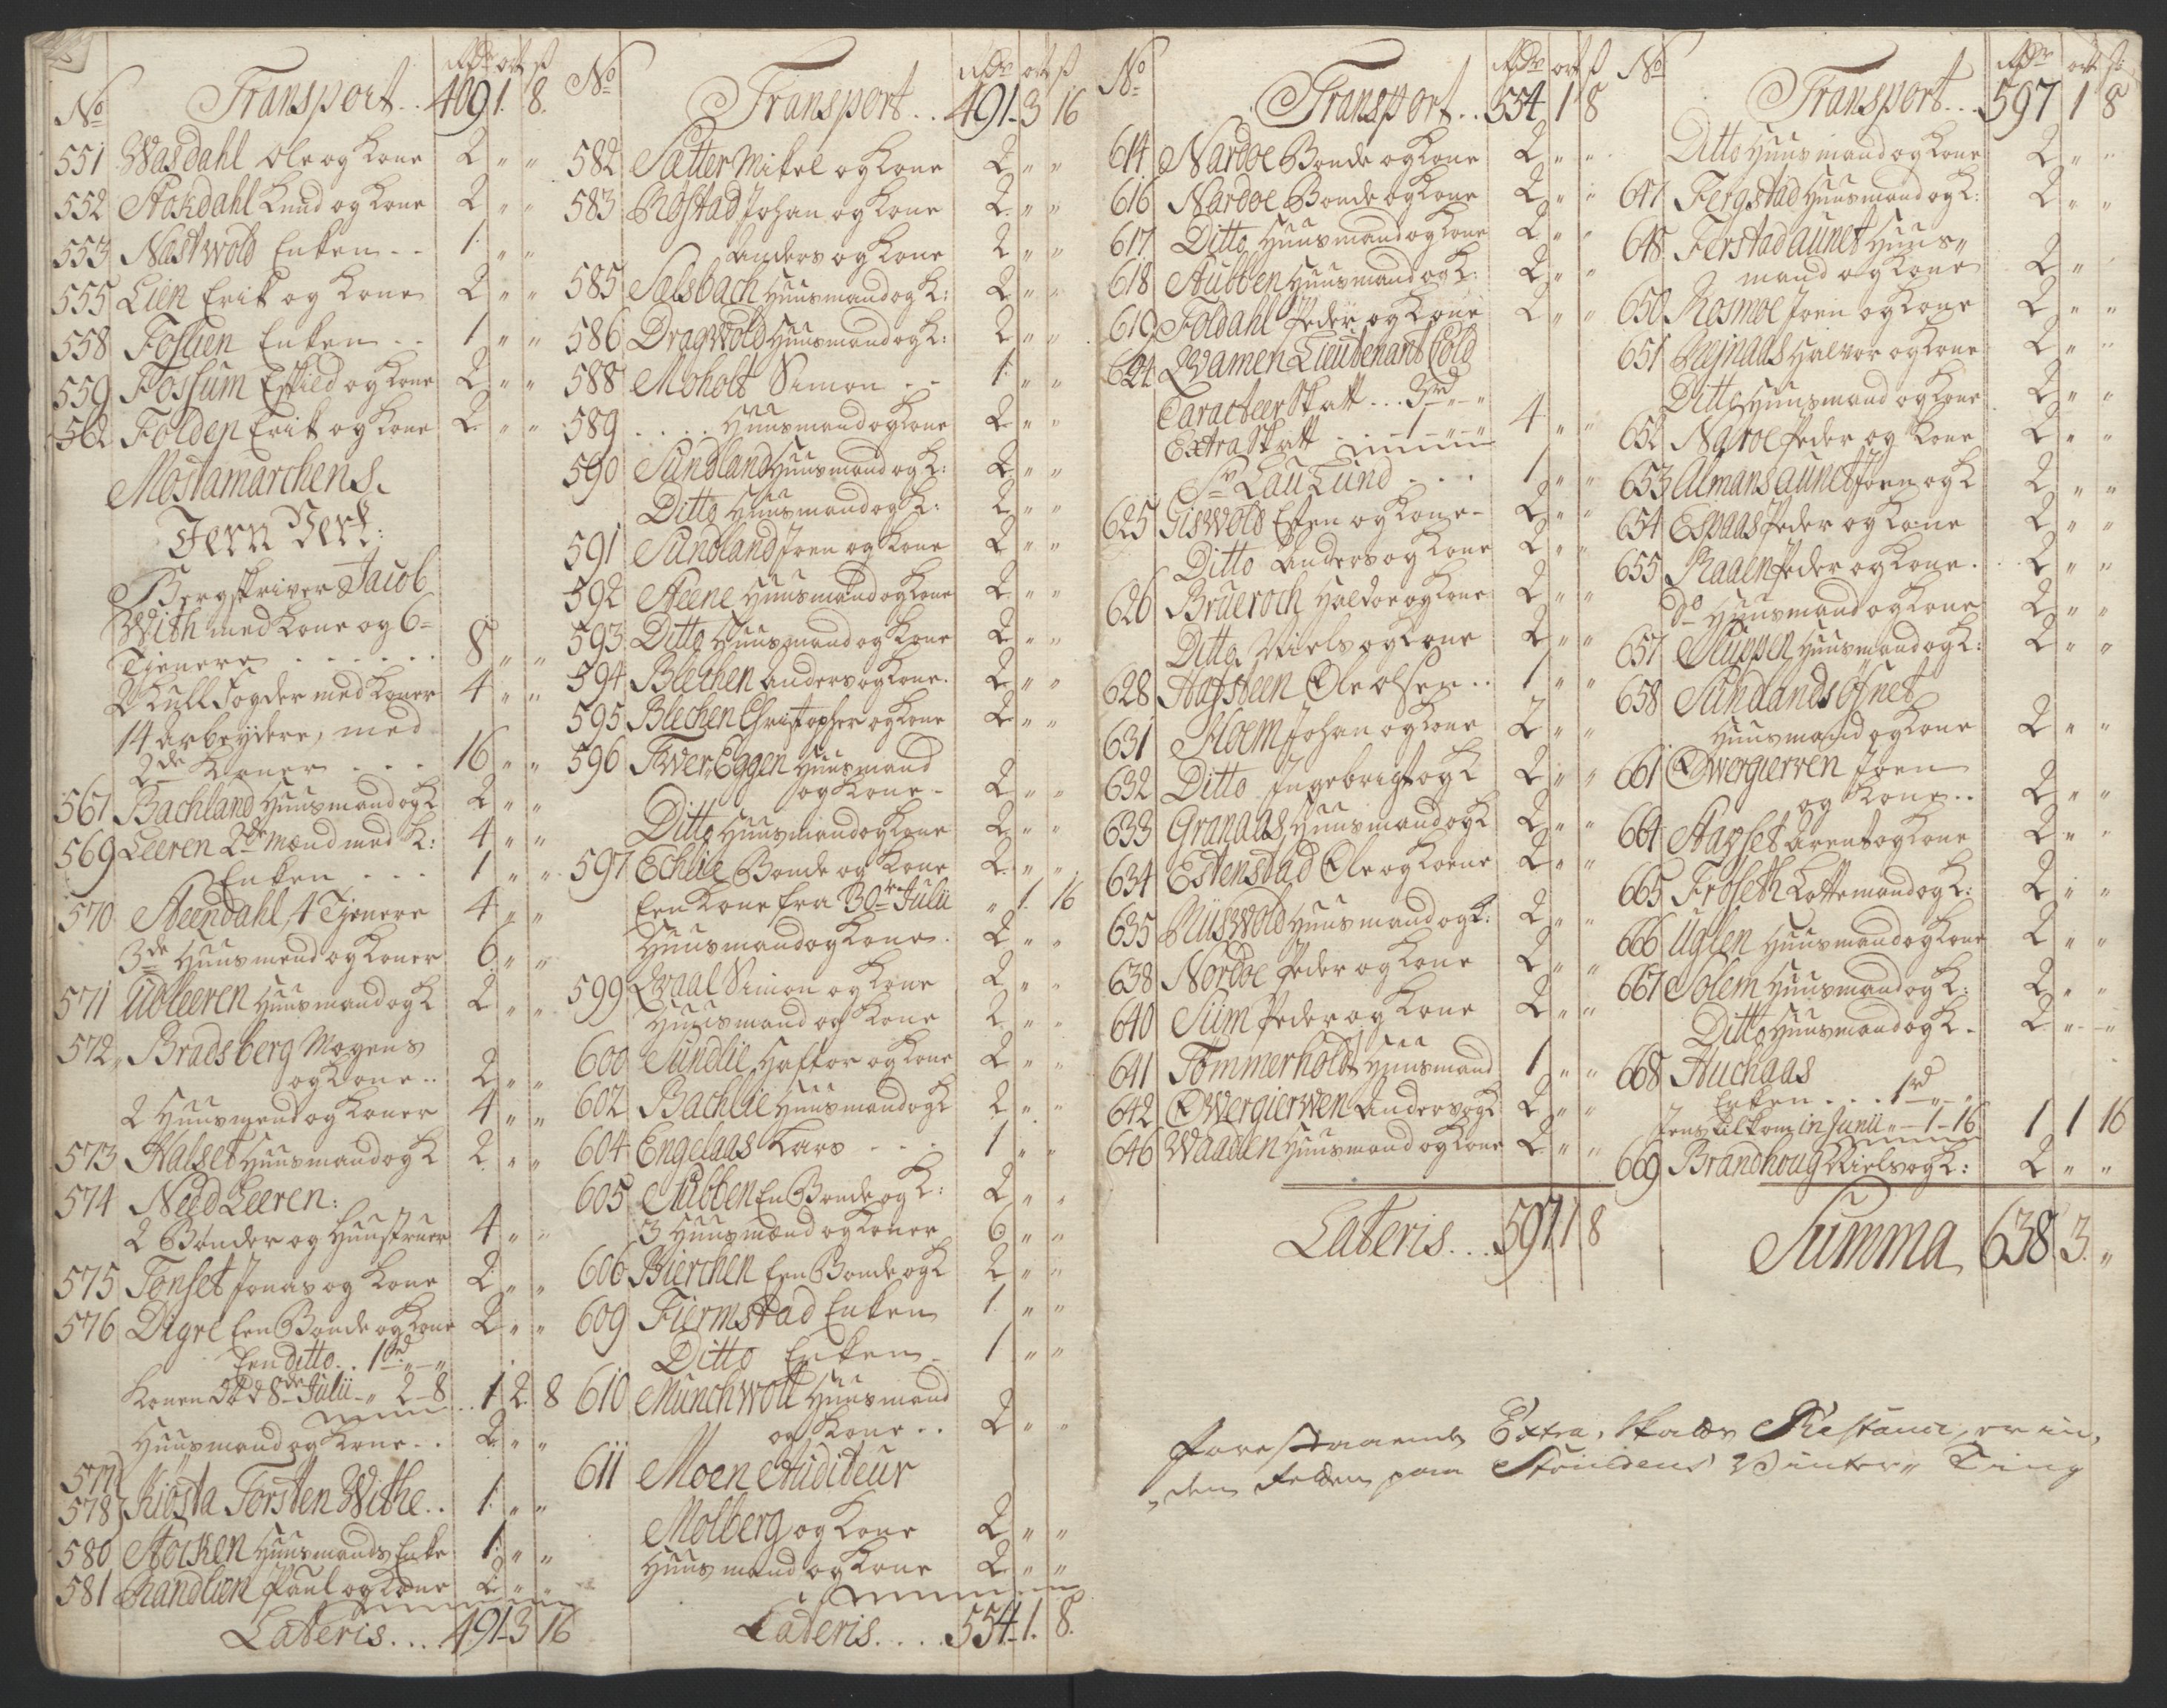 No Transport.. 409 1. 8.
Rdr ort ß
551 Wasdahl Ole og Kone 2 " "
552 Stokdahl Knud og Kone 2 " "
553 Nastwold Enken -- 1. " "
555 Lien Erik og Kone 2 " "
558 Foslien Enken -- 1 " "
559 Fossum Eskild og Kone 2 " "
562 Folden Erik og Kone 2 " "
Mostamarchens
Jern Verk:
Bergskriver Jacob
With med Kone og 6=
Tjenere . . . . . . 8 " "
2 Kull Fogder med Koner 4 " "
14 arbeydere, med
2de Koner . . . 16 " "
567 Bachland Huusmand og K 2 " "
569 Leeren 2de Mænd med K: 4 " "
Enken . . . 1 " "
570 Steendahl, 4 Tjenere 4 " "
3de Huusmend og Koner 6 " "
571 Ubleeren Huusmand og K 2 " "
572 Bradsberg Mogens
og Kone.. 2 " "
2 Huusmend og Koner 4 " "
573 Halset Huusmand og K 2 " "
574 Need Leeren:
2 Bønder og Huustruer 4 " "
575 Tonset Jonas og Kone 2 " "
576 Digre Een Bonde og Kone 2 " "
Een ditto.. 1 rd " — "
Konen død 8de Julii - " 2 - 8 .. 1 2 8
Huusmand og Kone.. 2 " "
577
578 Kiösta Torsten Withe.. 1 " "
580 Stocken Huusmands Enke 1 " "
581 Randlien Paul og Kone 2 " "
Lateris.... 491-3 16
No Transport.. 491-3 16
Rdr ort ß
582 Sætter Mikel og Kone 2 " "
583 Rostad Johan og Kone 2 " "
Anders og Kone 2 " "
585 Salsbach Huusmand og K: 2 " "
586 Dragwold Huusmand og K: 2 " "
588 Moholt Simon -- 1 " "
589 . . . . Huusmand og Kone 2 " "
590 Sundland Huusmand og K: 2 " "
Ditto Huusmand og K: 2 " "
591 Sundland Joen og Kone 2 " "
592 Steene Huusmand og Kone 2 " "
593 Ditto Huusmand og Kone 2 " "
594 Blechen Anders og Kone. 2 " "
595 Blechen Christopher og Kone 2 " "
596 Twer Eggen Huusmand
og Kone - 2 " "
Ditto Huusmand og Kone 2 " "
597 Echlie Bonde og Kone 2 " "
Een Kone fra 30te Julii " 1. 16
Huusmand og Kone. 2 " "
599 Qvaal Simon og Kone 2 " "
Huusmand og Kone 2 " "
600 Sundlie Haftor og Kone 2 " "
602 Bachlie Huusmand og K 2 " "
604 Engelaas Lars -- . 1 " "
605 Stubben En Bonde og K: 2 " "
3 Huusmænd og Koner 6 " "
606 Bierchen Een Bonde og K 2 " "
609 Tiermstad Enken 1. " "
Ditto Enken - 1 " "
610 Munchwoll Huusmand
og Kone.. 2 " "
611 Moen Auditeur
Molberg og Kone 2 " "
Huusmand og Kone 2 " "
Lateris.... 554-1. 8.
No Transport.. 554 1 8
Rdr ort ß
614 Nardoe Bonde og Kone 2 " "
616 Nardoe Bonde og Kone 2 " "
617 Ditto Huusmand og Kone 2 " "
618 Stubben Huusmand og K: 2 " "
619 Foldahl Peder og Kone 2 " "
624 Qwamen Lieutenant Cold
Caracteer Skatt... 3 rd " "
Extra Skatt . . . 1 " " 4 " "
Sr Lau Lund . . . . 1 " "
625 Giswold Esten og Kone - 2 " "
Ditto Anders og Kone 2 " "
626 Brueroch Haldor og Kone 2 " "
Ditto Niels og Kone 2 " "
628 Hafsteen Ole Olsen.. 1 " "
631 Hoem Johan og Kone 2 " "
632 Ditto Ingebrigt og K 2 " "
633 Granaas Huusmand og K 2 " "
634 Estenstad Ole og Koene 2 " "
635 Riiswold Huusmand og K: 2 " "
638 Nordoe Peder og Kone 2 " "
640 Siim Peder og Kone 2 " "
641 Tömmerholdt Huusmand 1 " "
642 Owergierwen Anders og K 2 " "
646 Waaden Huusmand og Kone 2 " "
Lateris... 597 1 8
No Transport.. 597 1 8
Rdr ort ß:
Ditto Huusmand og Kone 2 " "
647 Fergstad Huusmand og K: 2 " "
648 Ferstad aunet Huus"
mand og Kone 2 " "
650 Rosmoe Joen og Kone 2 " "
651 Halvor og Kone 2 " "
Ditto Huusmand og Kone 2 " "
652 Naroe Peder og Kone 2 " "
653 Almansaunet Joen og K 2 " "
654 Espaas Peder og Kone 2 " "
655 Raaen Peder og Kone. 2 " "
Do Huusmand og Kone 2 " "
657 Sluppen Huusmand og K: 2 " "
658 Sundlandsöfnet
Huusmand og Kone 2 " "
661 Owergierven Joen
og Kone.. 2 " "
664 Hagset Arent og Kone 2 " "
665 Froseth Lottemand og K: 2 " "
666 Uglen Huusmand og Kone 2 " "
667 Solem Huusmand og K: 2 " "
Ditto Huusmand og K - 2 " "
668 Huchaas
Enken . . . 1 rd " "
tilkom in Junii " — 1 - 16 1 1 16
669 Brandhoug Niels og K: 2 " "
Summa 638 3. "
Forestaaende Extra, Skatts Restance, er in,
"den felden paa Stduldens Winter" Ting